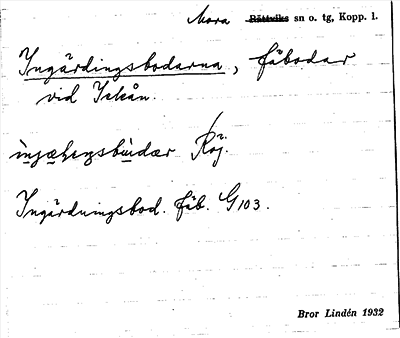 Mora Rättviks sn o. tg, Kopp. l.
Ingärdingsbodarna, fäbodar
vid Ickån.
Röj.
Ingärdningsbod. fäb. G103.
Bror Lindén 1932